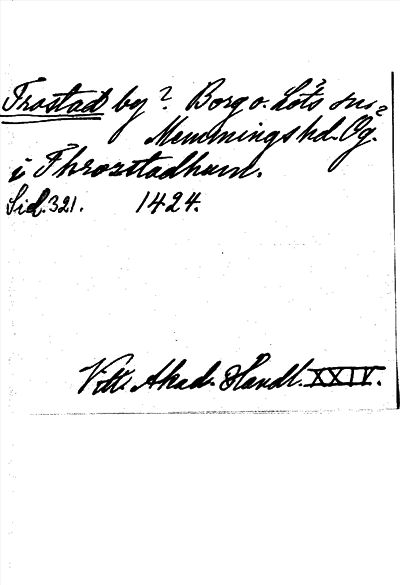 Trostad by? Borg o. Löt's sn?
Memmings hd. Ög.
i Throzstadhum.
Sid. 321. 1424.
Vitt. Akad. Handl. XXIV.